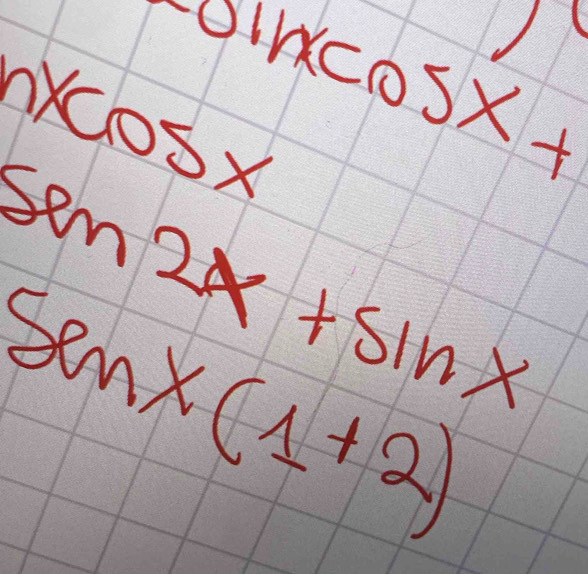 sinxcosx +
nxcosx
sen 2x + sinx
senx(1+2)